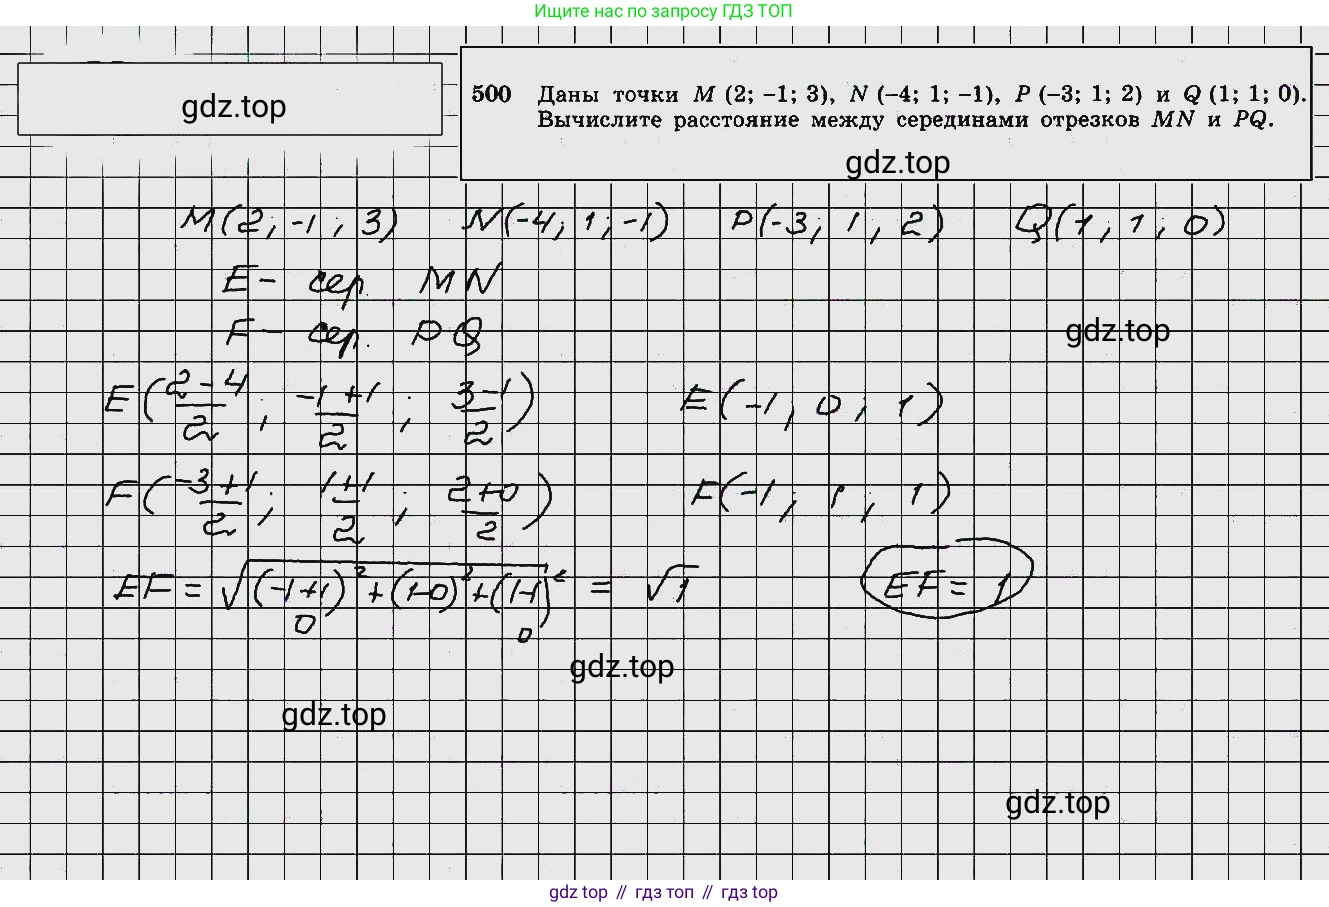 Ищите нас по запросу ГДЗ ТОП
gdz.top
500 Даны точки M (2; –1; 3), N (–4; 1; –1), P (–3; 1; 2) и Q (1; 1; 0).
Вычислите расстояние между серединами отрезков MN и PQ.
gdz.top
M(2; -1; 3) N(-4; 1; -1) P(-3; 1; 2) Q(1; 1; 0)
E - сер. MN
F - сер. PQ
gdz.top
E((2-4)/2; (-1+1)/2; (3-1)/2) E(-1; 0; 1)
F((-3+1)/2; (1+1)/2; (2+0)/2) F(-1; 1; 1)
EF = √((-1+1)² + (1-0)² + (1-1)²) = √1 EF = 1
0 0
gdz.top
gdz.top
gdz.top
gdz top // гдз топ // гдз top